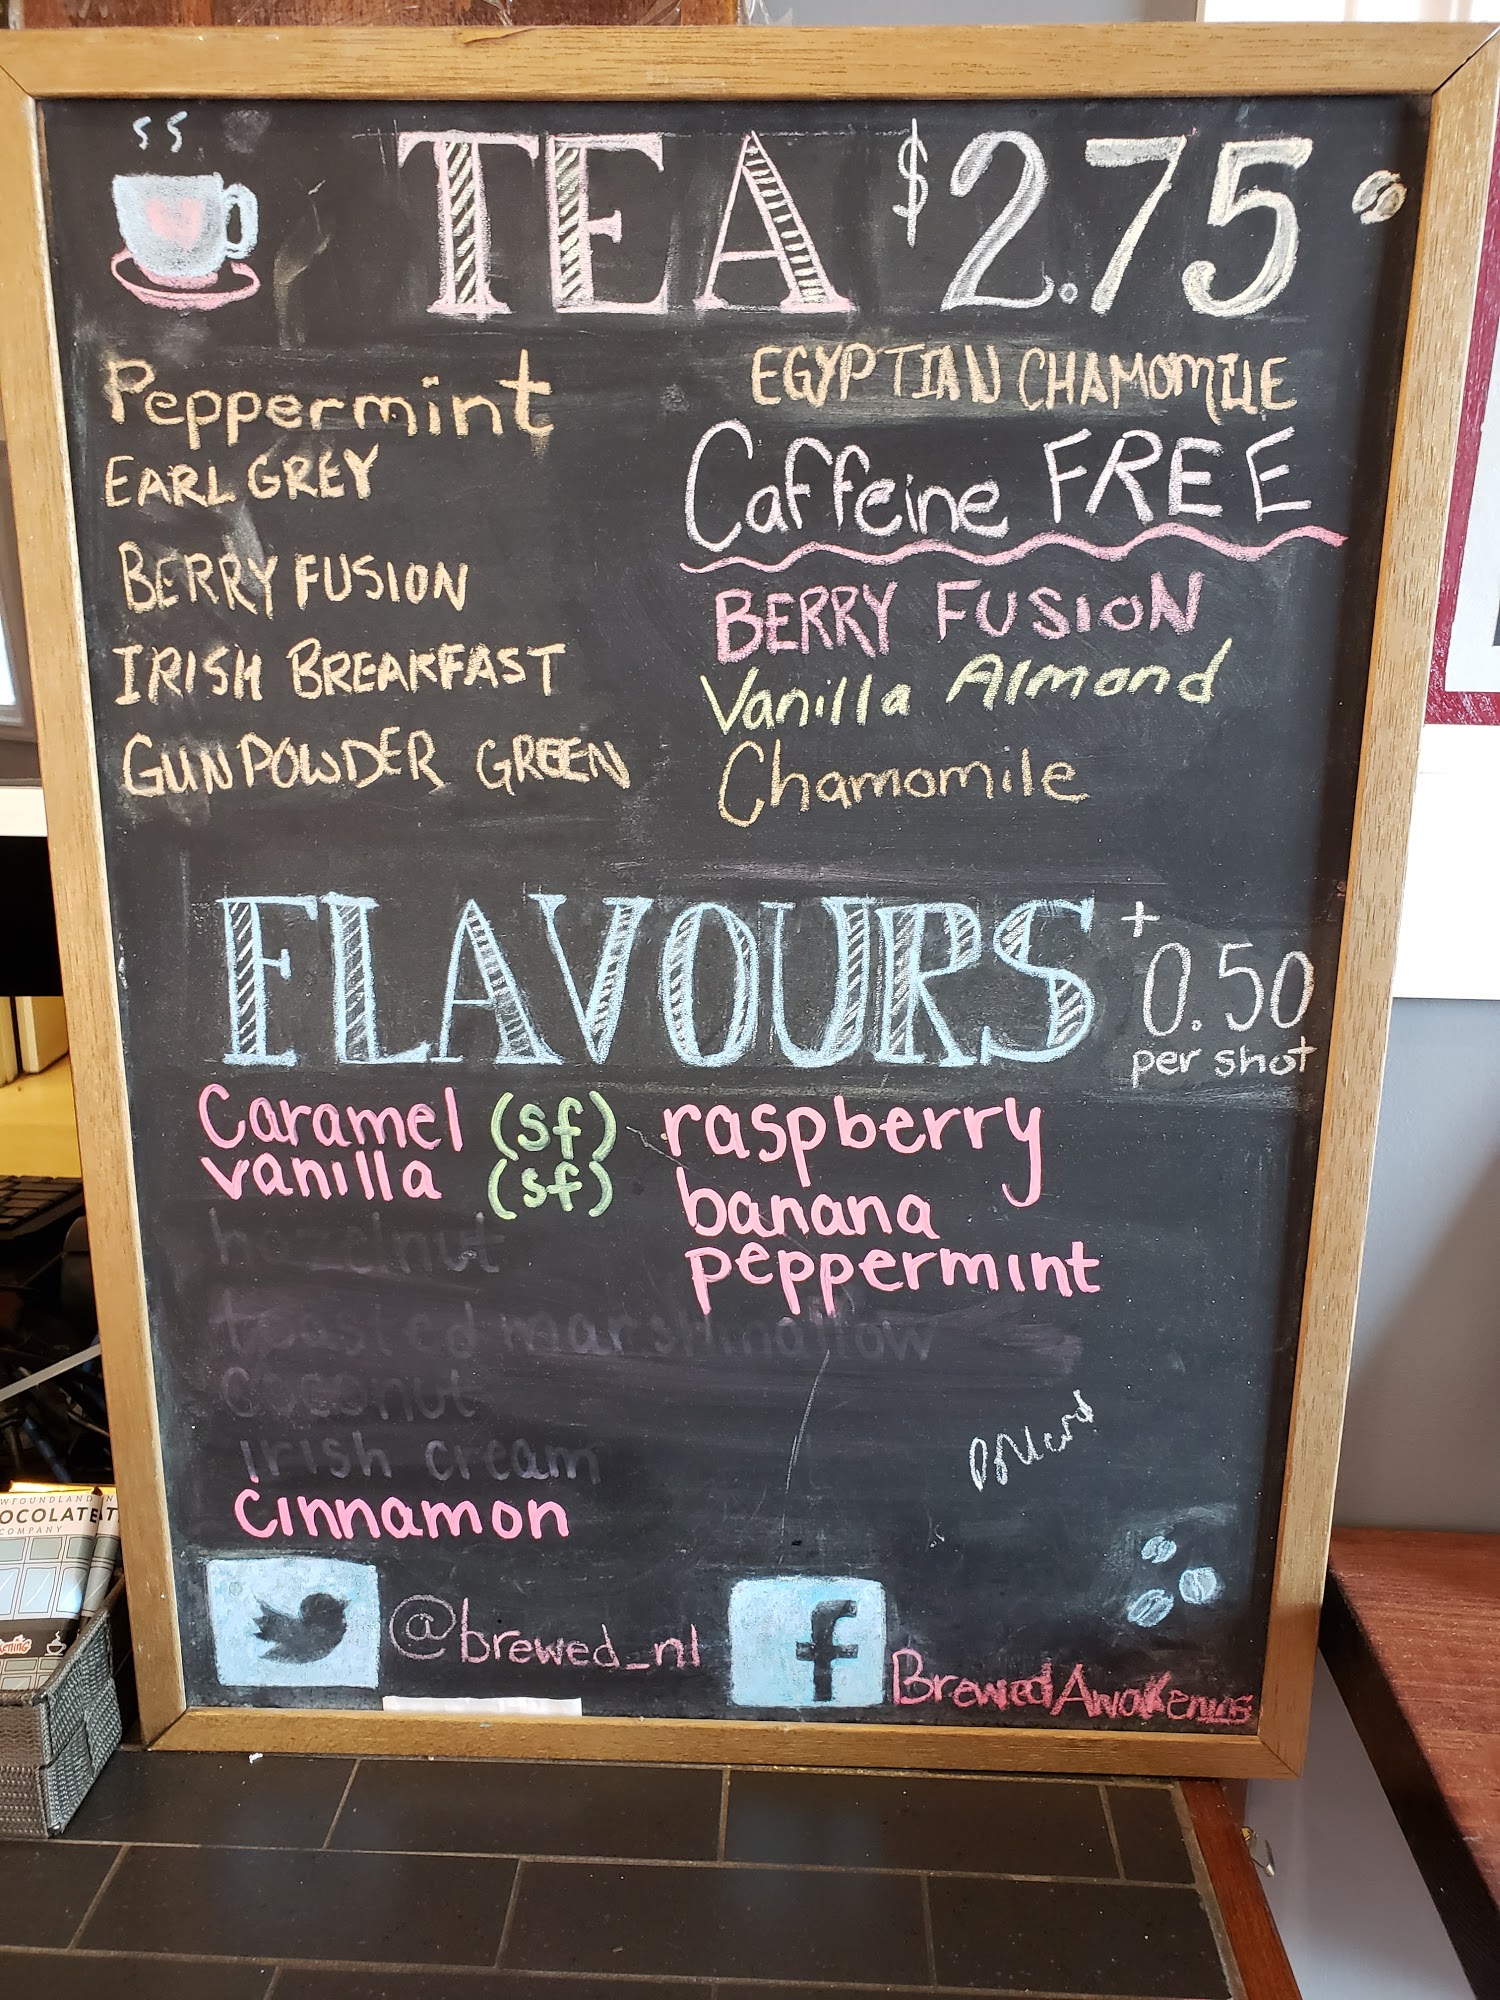 TEA $2.75
Peppermint
EARL GREY
BERRY FUSION
IRISH BREAKFAST
GUNPOWDER GREEN
EGYPTIAN CHAMOMILE
Caffeine FREE
BERRY FUSION
Vanilla Almond
Chamomile
FLAVOURS +0.50
per shot
Caramel (sf)
vanilla (sf)
hazelnut
toasted marshmallow
coconut
irish cream
cinnamon
raspberry
banana
peppermint
@brewed_nl
f BrewedAwakenings
WFOUNDLAND
OCOLATE
COMPANY